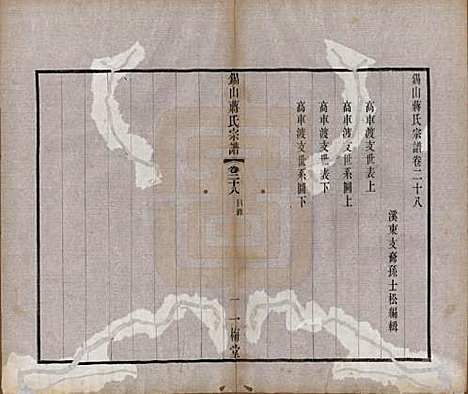 錫山蔣氏宗譜卷二十八
溪東支裔孫士松編輯
高車渡支世表上
高車渡支世系圖上
高車渡支世表下
高車渡支世系圖下
錫山蔣氏宗譜 卷二十八 目錄 一 一梅堂